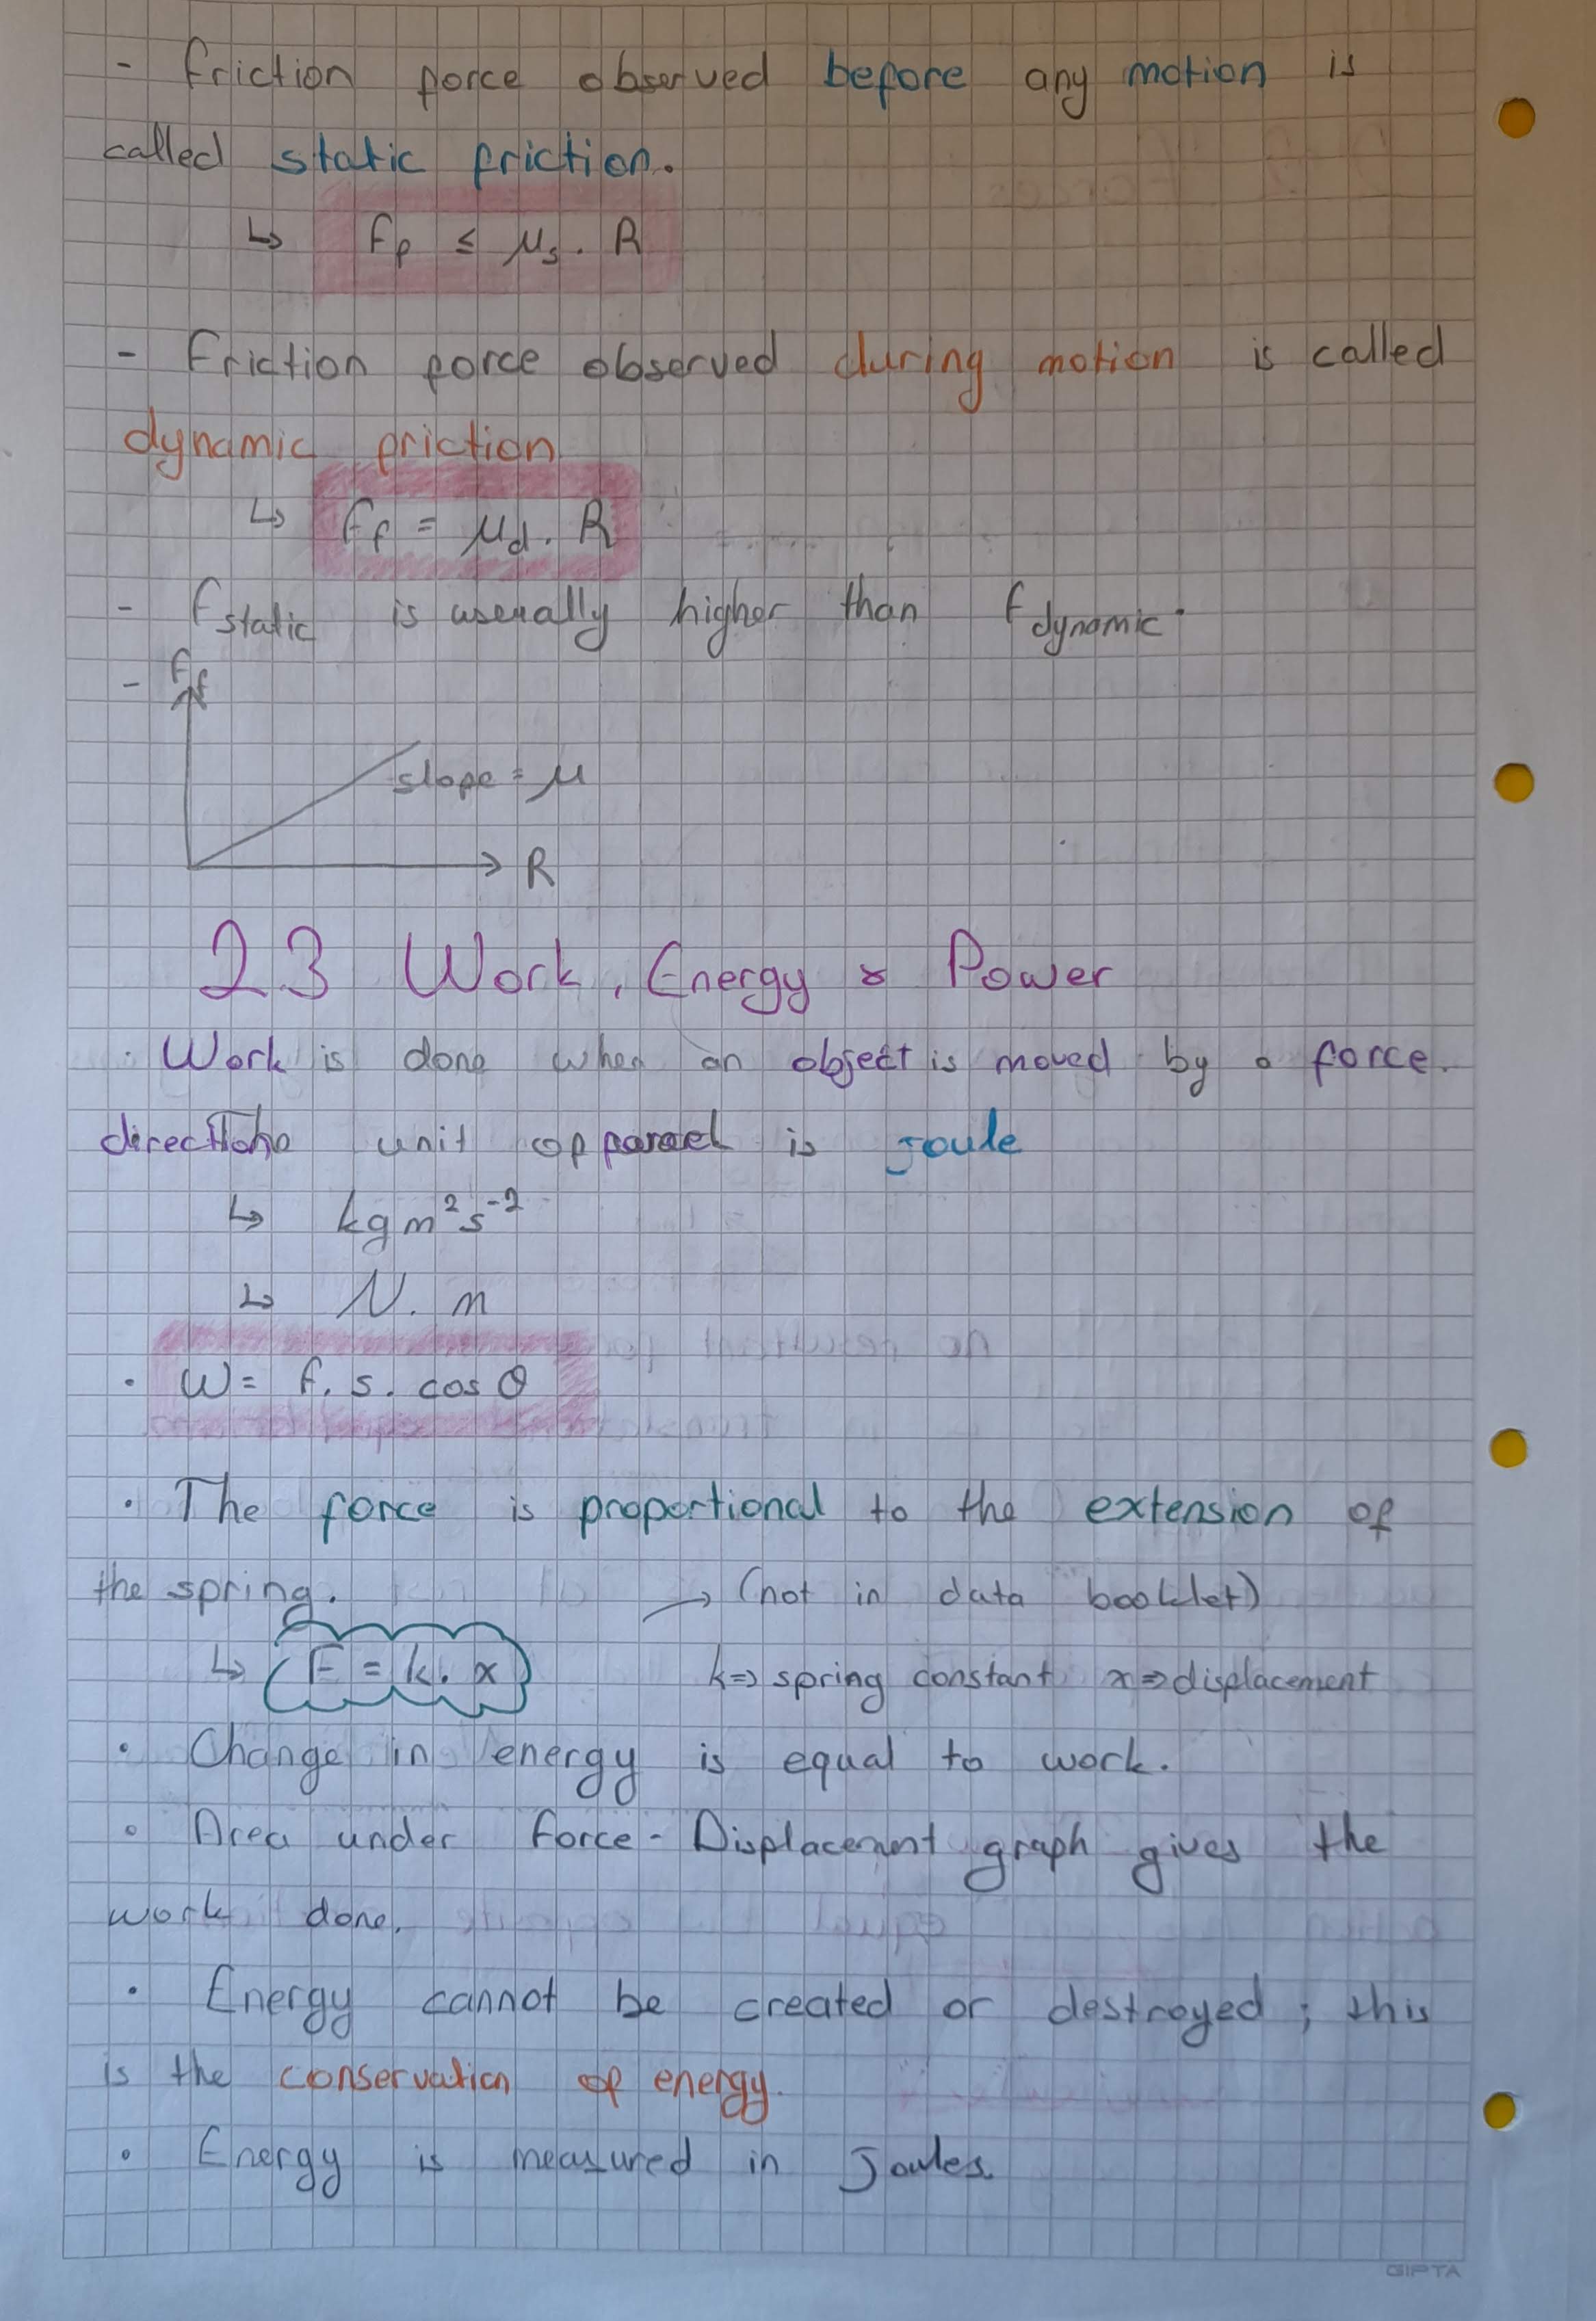 - Friction force observed before any motion is
called static friction.
↳ Ff ≤ μs . R
- Friction force observed during motion is called
dynamic friction
↳ Ff = μd . R
- Fstatic is usually higher than Fdynamic.
- Ff
slope = μ
R
2.3 Work, Energy & Power
· Work is done when an object is moved by a force.
unit of is Joule
↳ kg m² s⁻²
↳ N. m
· W = F. s. cos θ
· The force is proportional to the extension of
the spring. → (not in data booklet)
↳ F = k. x k => spring constant x => displacement
· Change in energy is equal to work.
· Area under Force - Displacement graph gives the
work done.
· Energy cannot be created or destroyed ; this
is the conservation of energy.
· Energy is measured in Joules.
GIPTA